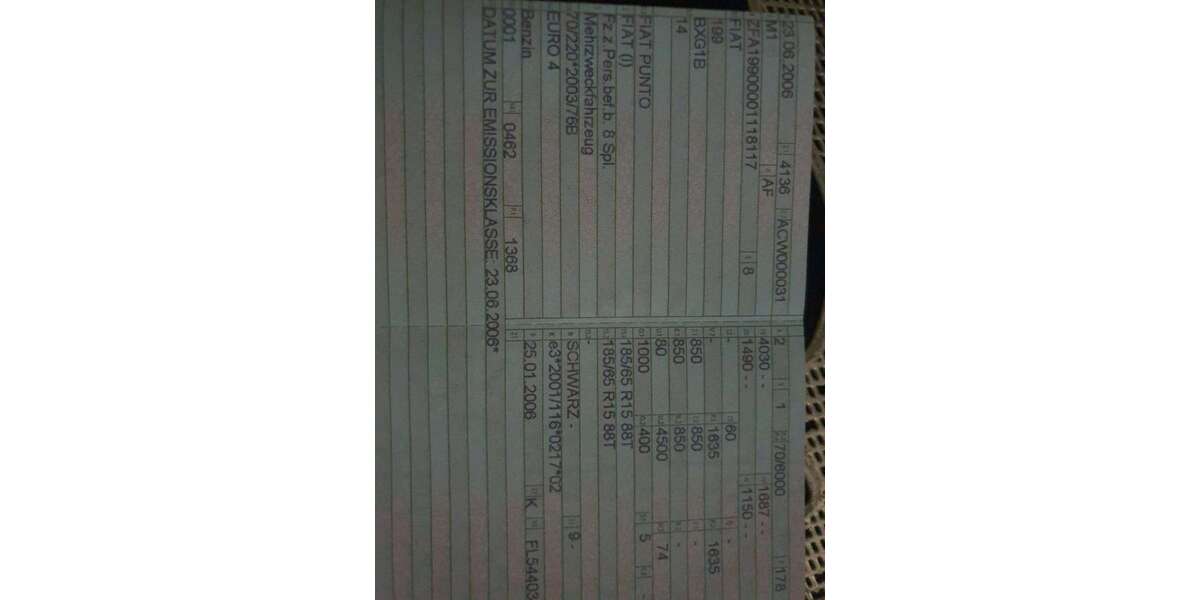 23.06.2006 4136 ACW000031
M1 AF
ZFA19900001118117 8
FIAT
199
BXG1B
14
FIAT PUNTO
FIAT (I)
Fz.z.Pers.bef.b. 8 Spl.
Mehrzweckfahrzeug
70/220*2003/76B
EURO 4
Benzin
0001 0462 1368
DATUM ZUR EMISSIONSKLASSE: 23.06.2006*
2 1 70/6000 178
4030 - - 1687 - -
1490 - - 1150 - -
- 60 -
- 1635 1635
850 850 -
850 850 -
80 4500 74
1000 400 5 -
185/65 R15 88T
185/65 R15 88T
-
SCHWARZ - 9 -
e3*2001/116*0217*02
25.01.2006 K FL54403